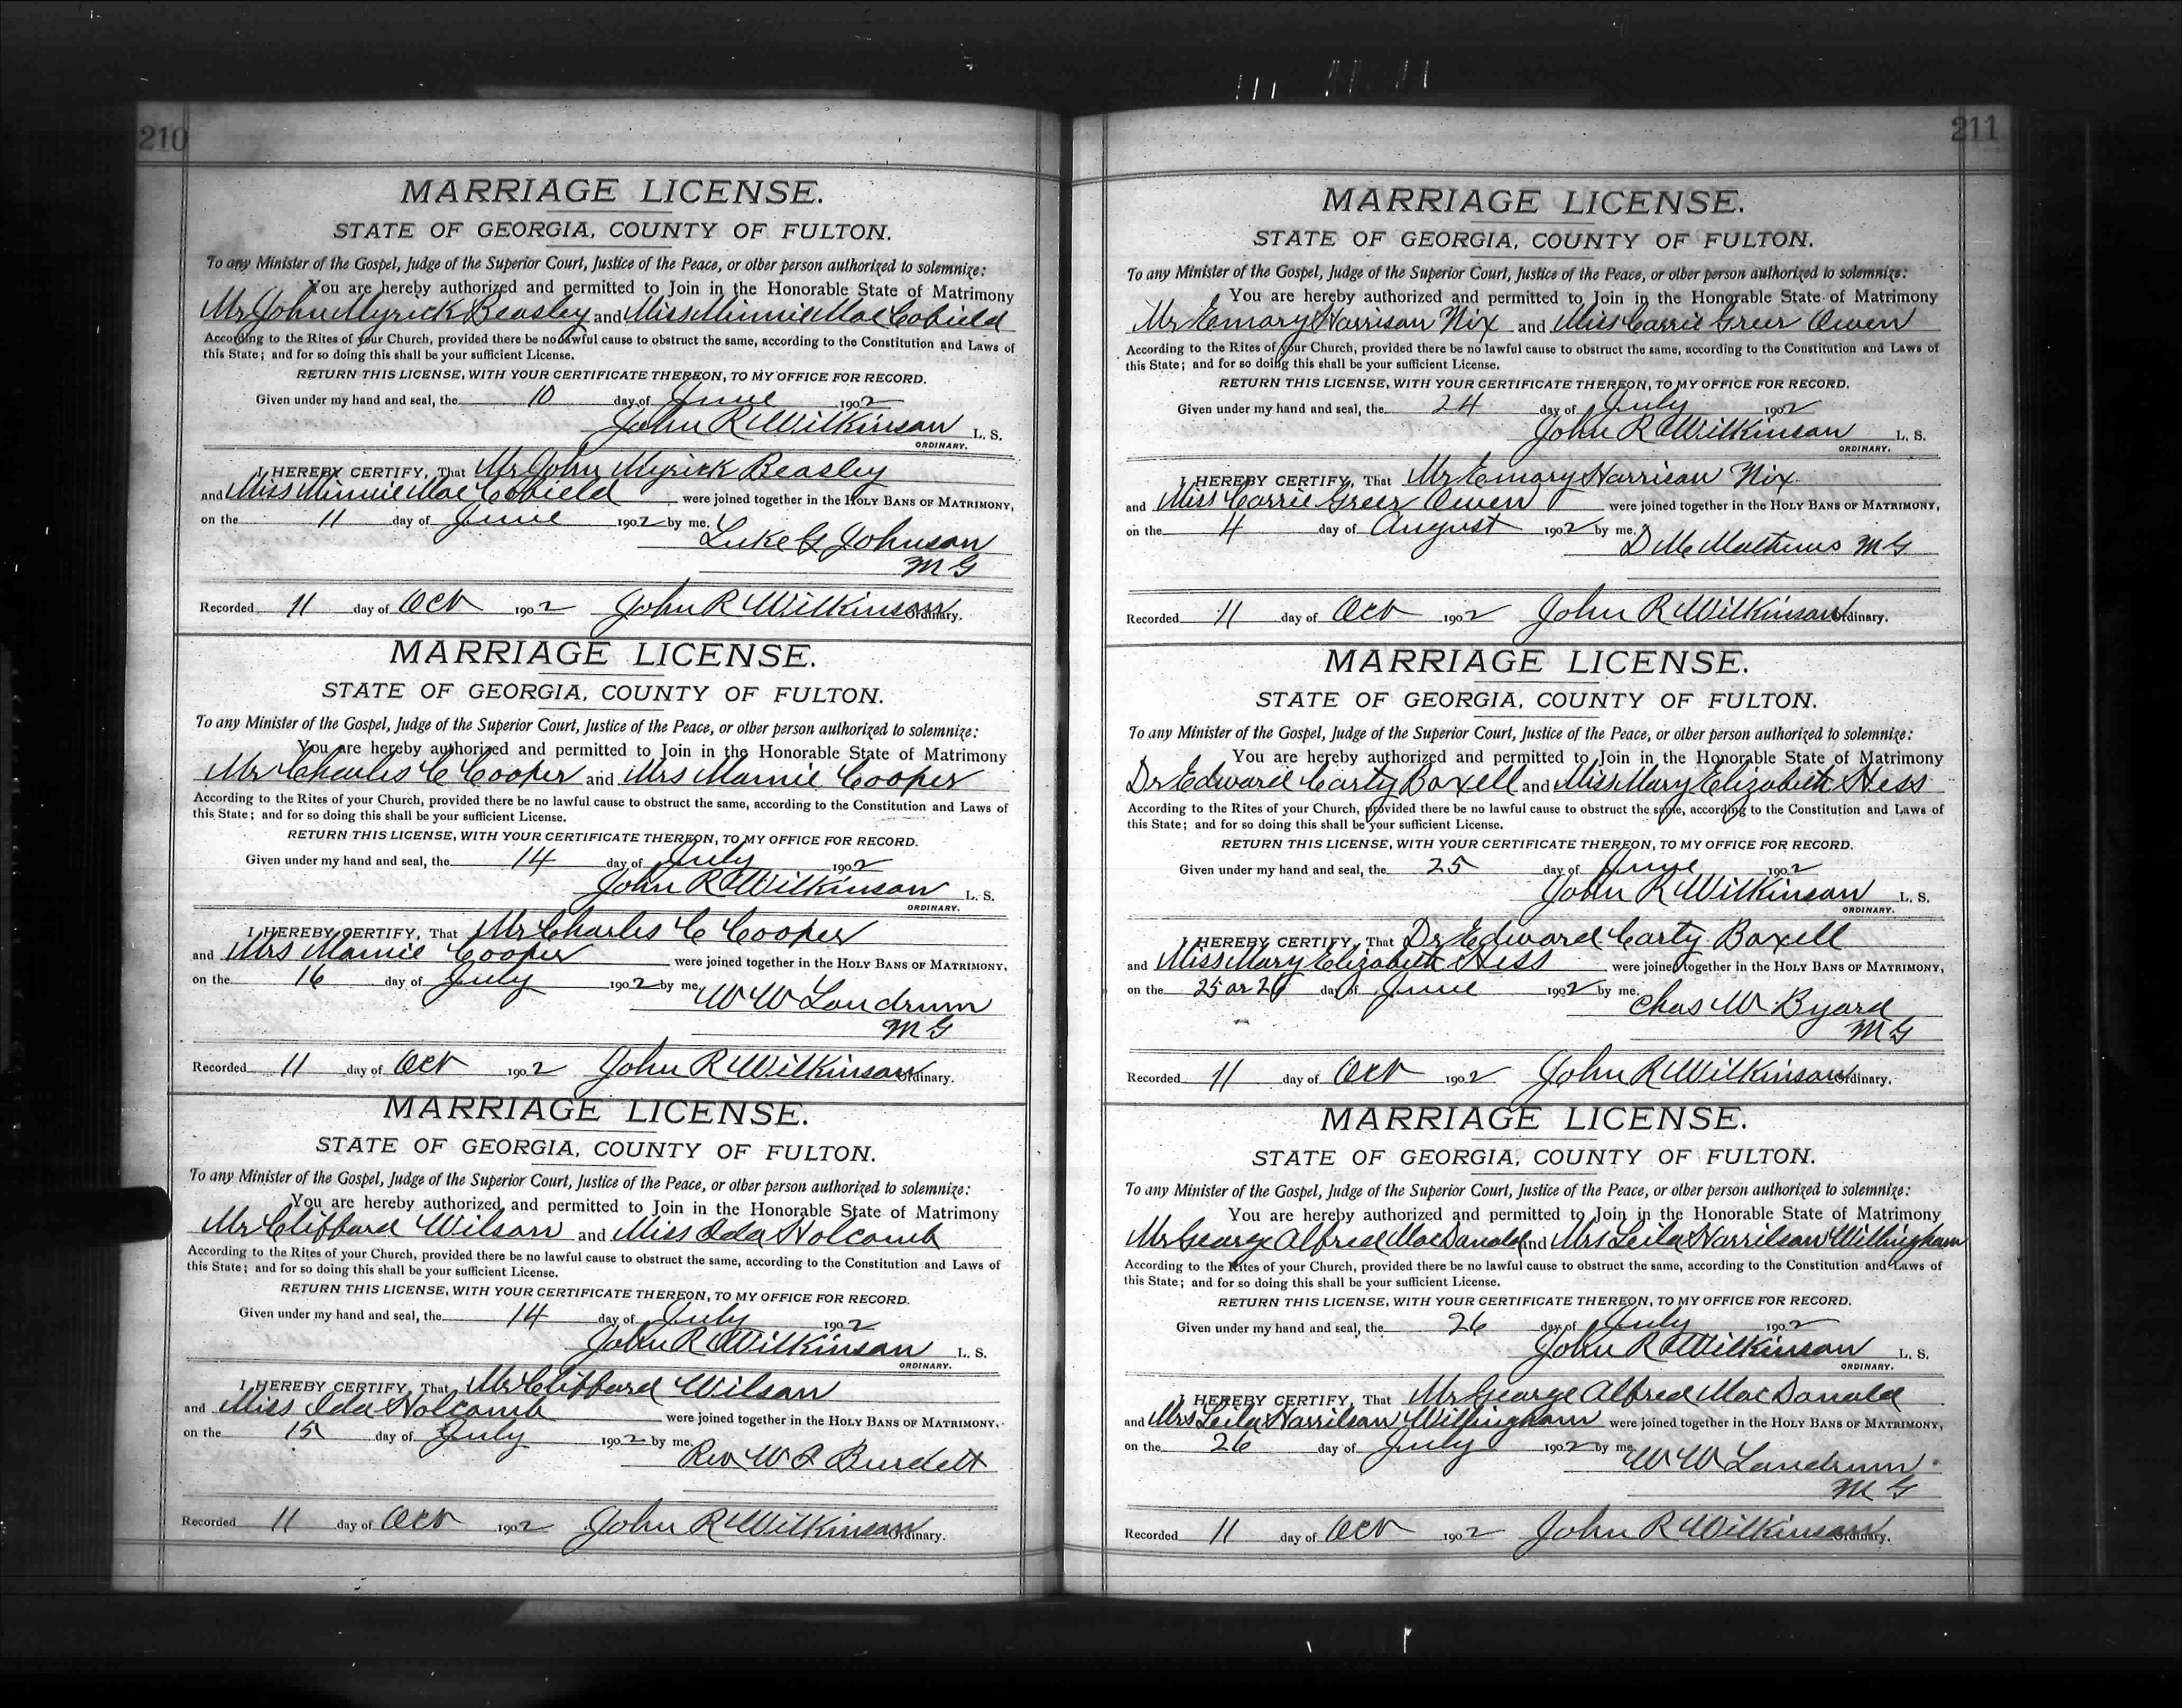 210
MARRIAGE LICENSE.
STATE OF GEORGIA, COUNTY OF FULTON.
To any Minister of the Gospel, Judge of the Superior Court, Justice of the Peace, or other person authorized to solemnize:
You are hereby authorized and permitted to Join in the Honorable State of Matrimony
Mr John Myrick Beasley and Miss Minnie Mae Cofield
According to the Rites of your Church, provided there be no lawful cause to obstruct the same, according to the Constitution and Laws of
this State; and for so doing this shall be your sufficient License.
RETURN THIS LICENSE, WITH YOUR CERTIFICATE THEREON, TO MY OFFICE FOR RECORD.
Given under my hand and seal, the 10 day of June 1902
John R Wilkinson L. S.
ORDINARY.
I HEREBY CERTIFY, That Mr John Myrick Beasley
and Miss Minnie Mae Cofield were joined together in the HOLY BANS OF MATRIMONY,
on the 11 day of June 1902 by me.
Luke G Johnson
M G
Recorded 11 day of Oct 1902 John R Wilkinson Ordinary.
MARRIAGE LICENSE.
STATE OF GEORGIA, COUNTY OF FULTON.
To any Minister of the Gospel, Judge of the Superior Court, Justice of the Peace, or other person authorized to solemnize:
You are hereby authorized and permitted to Join in the Honorable State of Matrimony
Mr Charles C Cooper and Mrs Mamie Cooper
According to the Rites of your Church, provided there be no lawful cause to obstruct the same, according to the Constitution and Laws of
this State; and for so doing this shall be your sufficient License.
RETURN THIS LICENSE, WITH YOUR CERTIFICATE THEREON, TO MY OFFICE FOR RECORD.
Given under my hand and seal, the 14 day of July 1902
John R Wilkinson L. S.
ORDINARY.
I HEREBY CERTIFY, That Mr Charles C Cooper
and Mrs Mamie Cooper were joined together in the HOLY BANS OF MATRIMONY,
on the 16 day of July 1902 by me.
W W Landrum
M G
Recorded 11 day of Oct 1902 John R Wilkinson Ordinary.
MARRIAGE LICENSE.
STATE OF GEORGIA, COUNTY OF FULTON.
To any Minister of the Gospel, Judge of the Superior Court, Justice of the Peace, or other person authorized to solemnize:
You are hereby authorized and permitted to Join in the Honorable State of Matrimony
Mr Clifford Wilson and Miss Ida Holcomb
According to the Rites of your Church, provided there be no lawful cause to obstruct the same, according to the Constitution and Laws of
this State; and for so doing this shall be your sufficient License.
RETURN THIS LICENSE, WITH YOUR CERTIFICATE THEREON, TO MY OFFICE FOR RECORD.
Given under my hand and seal, the 14 day of July 1902
John R Wilkinson L. S.
ORDINARY.
I HEREBY CERTIFY, That Mr Clifford Wilson
and Miss Ida Holcomb were joined together in the HOLY BANS OF MATRIMONY,
on the 15 day of July 1902 by me.
Rev W Burdett
Recorded 11 day of Oct 1902 John R Wilkinson Ordinary.
211
MARRIAGE LICENSE.
STATE OF GEORGIA, COUNTY OF FULTON.
To any Minister of the Gospel, Judge of the Superior Court, Justice of the Peace, or other person authorized to solemnize:
You are hereby authorized and permitted to Join in the Honorable State of Matrimony
Mr Emory Harrison Nix and Miss Carrie Greer Owen
According to the Rites of your Church, provided there be no lawful cause to obstruct the same, according to the Constitution and Laws of
this State; and for so doing this shall be your sufficient License.
RETURN THIS LICENSE, WITH YOUR CERTIFICATE THEREON, TO MY OFFICE FOR RECORD.
Given under my hand and seal, the 24 day of July 1902
John R Wilkinson L. S.
ORDINARY.
I HEREBY CERTIFY, That Mr Emory Harrison Nix
and Miss Carrie Greer Owen were joined together in the HOLY BANS OF MATRIMONY,
on the 4 day of August 1902 by me.
D Mc Mathews M G
Recorded 11 day of Oct 1902 John R Wilkinson Ordinary.
MARRIAGE LICENSE.
STATE OF GEORGIA, COUNTY OF FULTON.
To any Minister of the Gospel, Judge of the Superior Court, Justice of the Peace, or other person authorized to solemnize:
You are hereby authorized and permitted to Join in the Honorable State of Matrimony
Dr Edward Carty Boxell and Miss Mary Elizabeth Hess
According to the Rites of your Church, provided there be no lawful cause to obstruct the same, according to the Constitution and Laws of
this State; and for so doing this shall be your sufficient License.
RETURN THIS LICENSE, WITH YOUR CERTIFICATE THEREON, TO MY OFFICE FOR RECORD.
Given under my hand and seal, the 25 day of June 1902
John R Wilkinson L. S.
ORDINARY.
I HEREBY CERTIFY, That Dr Edward Carty Boxell
and Miss Mary Elizabeth Hess were joined together in the HOLY BANS OF MATRIMONY,
on the 25 or 26 day of June 1902 by me.
Chas W. Byard
M G
Recorded 11 day of Oct 1902 John R Wilkinson Ordinary.
MARRIAGE LICENSE.
STATE OF GEORGIA, COUNTY OF FULTON.
To any Minister of the Gospel, Judge of the Superior Court, Justice of the Peace, or other person authorized to solemnize:
You are hereby authorized and permitted to Join in the Honorable State of Matrimony
Mr George Alfred MacDonald and Mrs Leila Harrilson Willingham
According to the Rites of your Church, provided there be no lawful cause to obstruct the same, according to the Constitution and Laws of
this State; and for so doing this shall be your sufficient License.
RETURN THIS LICENSE, WITH YOUR CERTIFICATE THEREON, TO MY OFFICE FOR RECORD.
Given under my hand and seal, the 26 day of July 1902
John R Wilkinson L. S.
ORDINARY.
I HEREBY CERTIFY, That Mr George Alfred MacDonald
and Mrs Leila Harrilson Willingham were joined together in the HOLY BANS OF MATRIMONY,
on the 26 day of July 1902 by me.
W W Landrum
M G
Recorded 11 day of Oct 1902 John R Wilkinson Ordinary.